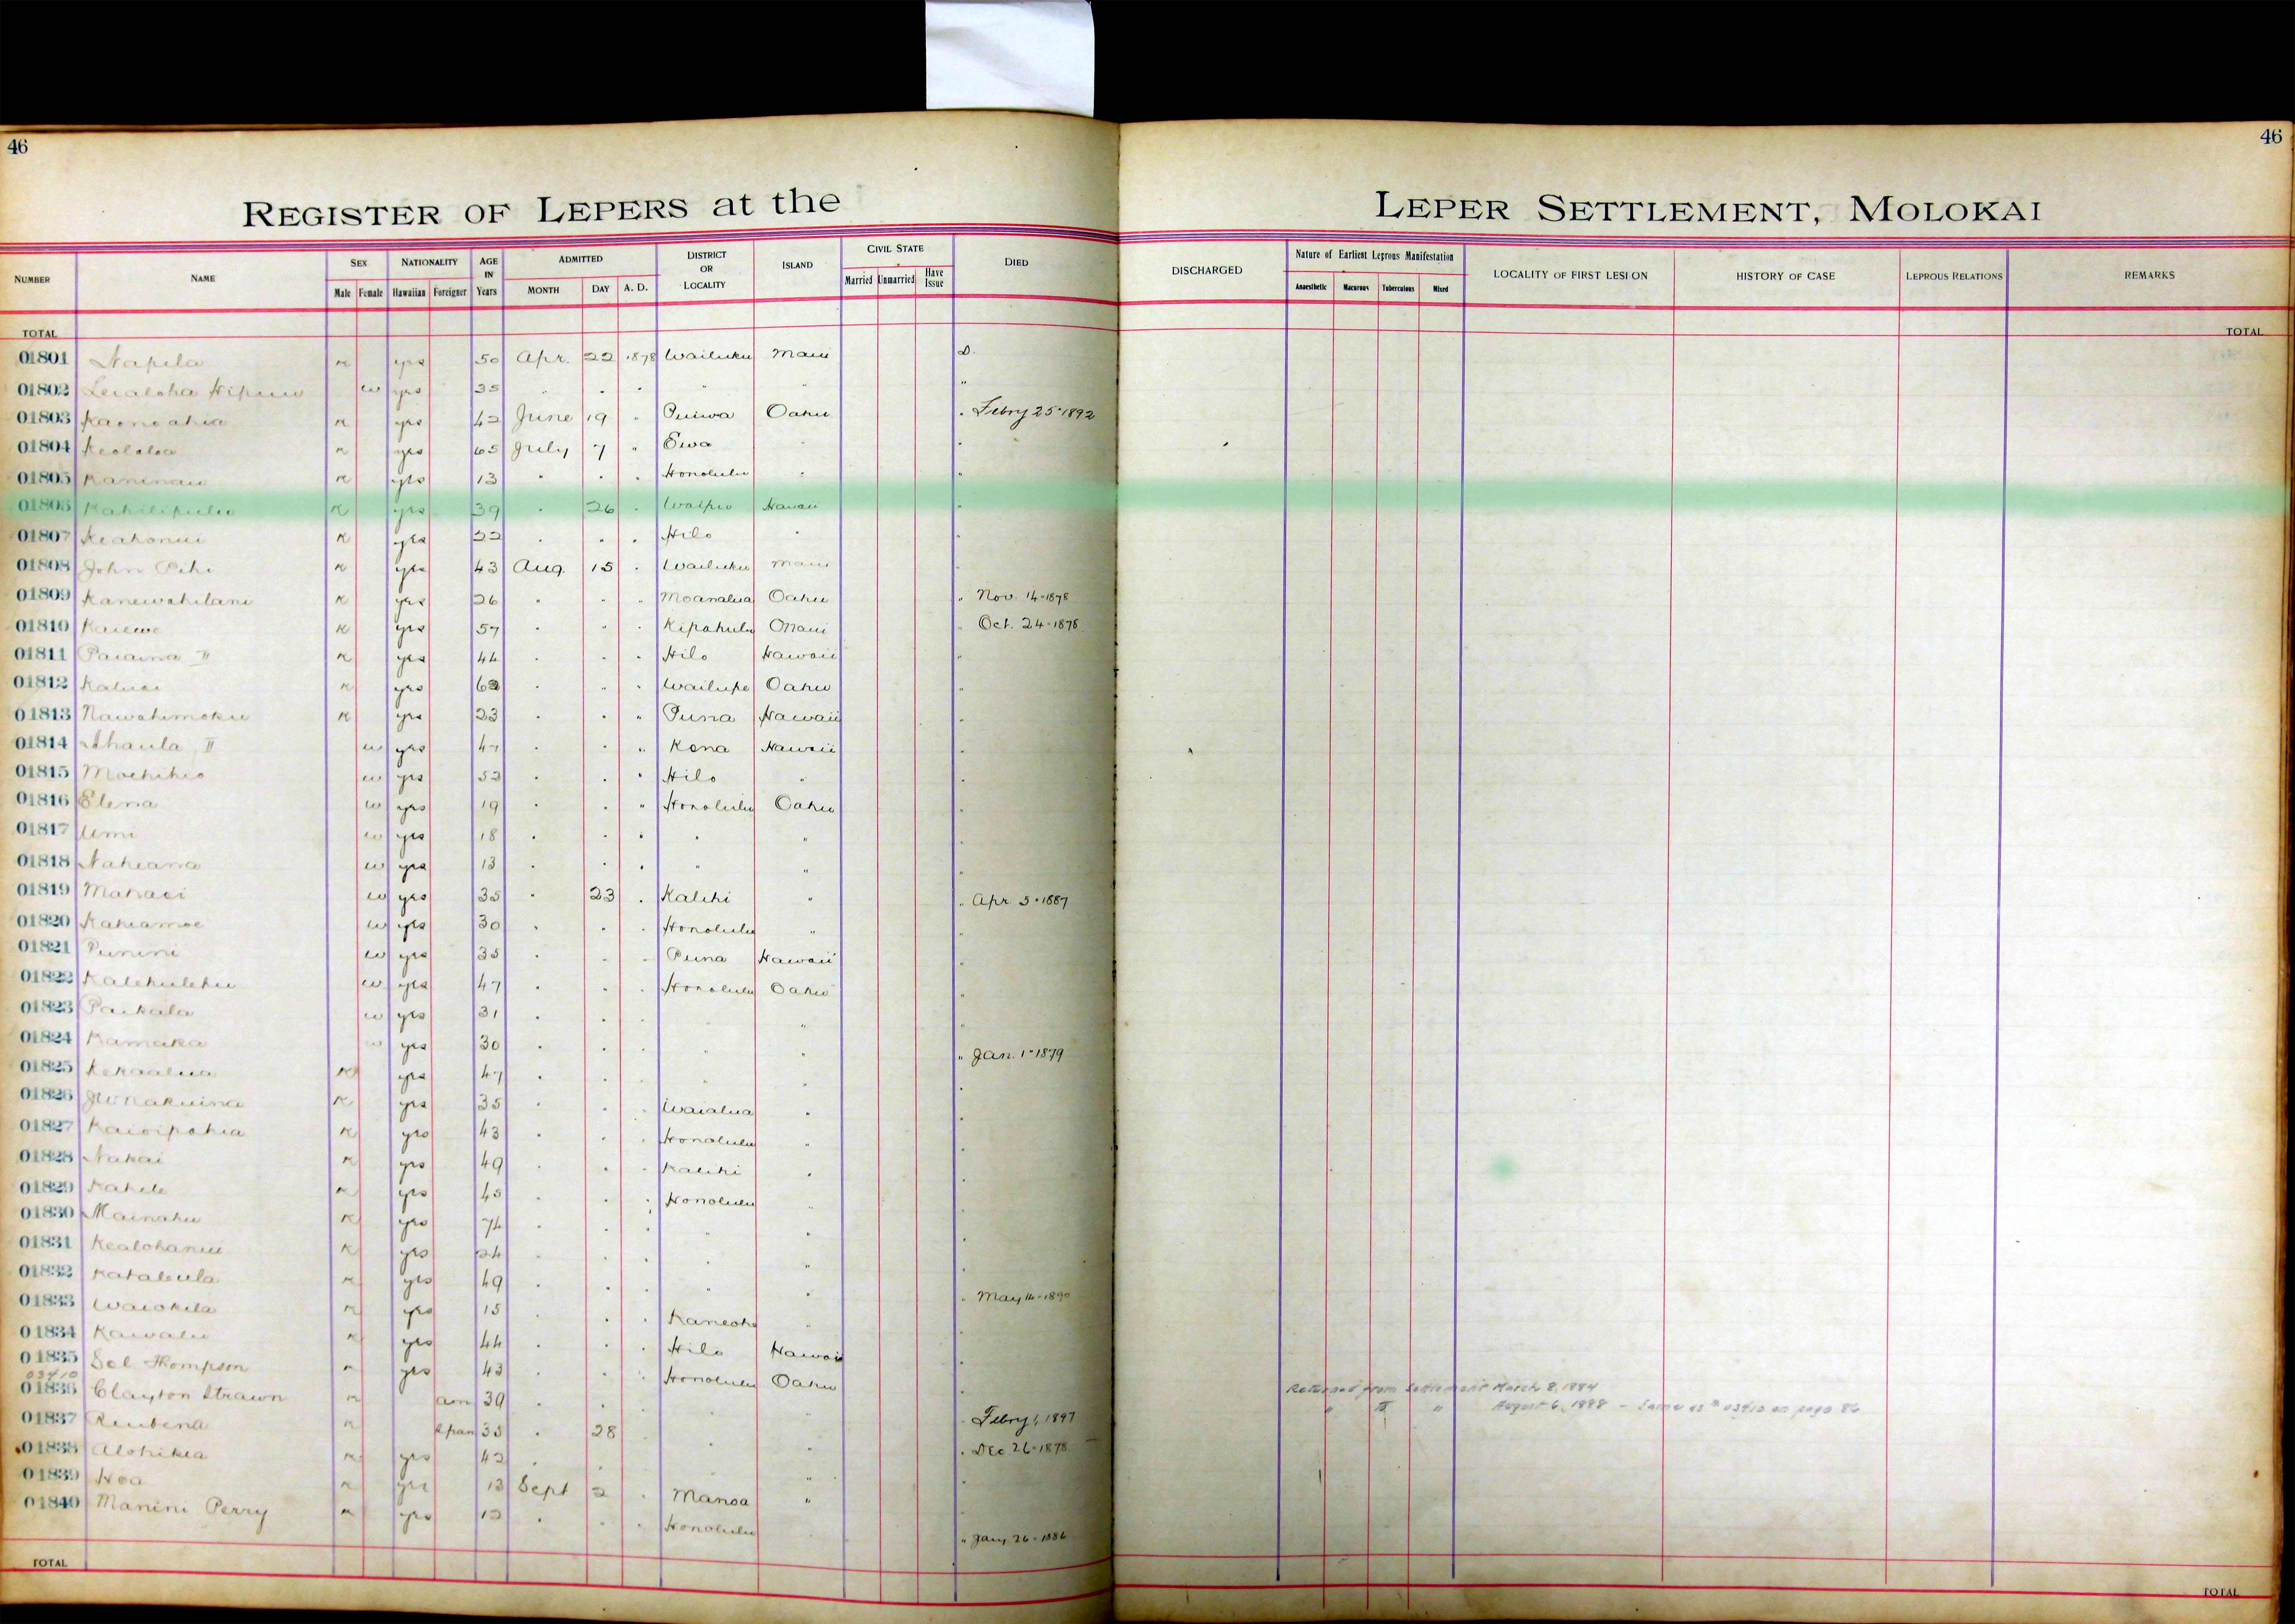 46
46
REGISTER OF LEPERS at the LEPER SETTLEMENT, MOLOKAI
NUMBER NAME SEX Male Female NATIONALITY Hawaiian Foreigner AGE IN Years ADMITTED MONTH DAY A. D. DISTRICT OR LOCALITY ISLAND CIVIL STATE Married Unmarried Have Issue DIED DISCHARGED Nature of Earliest Leprous Manifestation Anaesthetic Macurous Tuberculous Mixed LOCALITY OF FIRST LESION HISTORY OF CASE LEPROUS RELATIONS REMARKS
TOTAL TOTAL
01801 Napela yes 50 Apr. 22 1878 Wailuku Maui D.
01802 Lealoha w yes 35 " " " " " "
01803 Kaonoahia yes 42 June 19 " Puiwa Oahu " Febry 25-1892
01804 Keololoa yes 65 July 7 " Ewa " "
01805 Kaninau yes 13 " " " Honolulu " "
01806 Kahilipulu yes 39 " 26 " Waipio Hawaii "
01807 Keahonui yes 22 " " " Hilo " "
01808 John yes 43 Aug. 15 " Wailuku Maui "
01809 Kanewahilani yes 26 " " " Moanalua Oahu " Nov. 14-1878
01810 Kaiewe yes 57 " " " Kipahulu Maui " Oct. 24-1878
01811 Paiaina II yes 44 " " " Hilo Hawaii "
01812 Kaluai yes 62 " " " Wailupe Oahu "
01813 Nawahimoku yes 23 " " " Puna Hawaii "
01814 Ahaula II w yes 47 " " " Kona Hawaii "
01815 Moehihio w yes 52 " " " Hilo " "
01816 Elena w yes 19 " " " Honolulu Oahu "
01817 Umi w yes 18 " " " " " "
01818 Naheana w yes 13 " " " " " "
01819 Mahaei w yes 35 " 23 " Kalihi " " Apr. 5-1887
01820 Kahiamoe w yes 30 " " " Honolulu " "
01821 Punini w yes 35 " " " Puna Hawaii "
01822 Kalehulehu w yes 47 " " " Honolulu Oahu "
01823 Paikala w yes 31 " " " " "
01824 Kamaka w yes 30 " " " " " " Jan. 1-1879
01825 Kekaalua yes 47 " " " " " "
01826 yes 35 " " " Waialua " "
01827 Kaioipohia yes 43 " " " Honolulu " "
01828 Nakai yes 49 " " " Kalihi " "
01829 Kahele yes 45 " " " Honolulu " "
01830 Mainahu yes 74 " " " " "
01831 Kealohanui yes 24 " " " " "
01832 Kahaleula yes 49 " " " " " " May 14-1890
01833 Waiokila yes 15 " " " Kaneohe " "
01834 Kawalu yes 44 " " " Hilo Hawaii "
01835 Sol Thompson yes 43 " " " Honolulu Oahu "
03410
01836 Clayton Strawn am 39 " " " " " " Febry 1, 1897 Returned from Settlement March 8, 1884
" " " August 6, 1888 - Same as # 03410 on page 86
01837 Reubena Span 35 " 28 " " " Dec 26-1878
01838 Alohikea yes 42 " " " "
01839 Noa yes 13 Sept 2 " Manoa "
01840 Manini Perry yes 12 " " " Honolulu " Jany 26-1886
TOTAL TOTAL